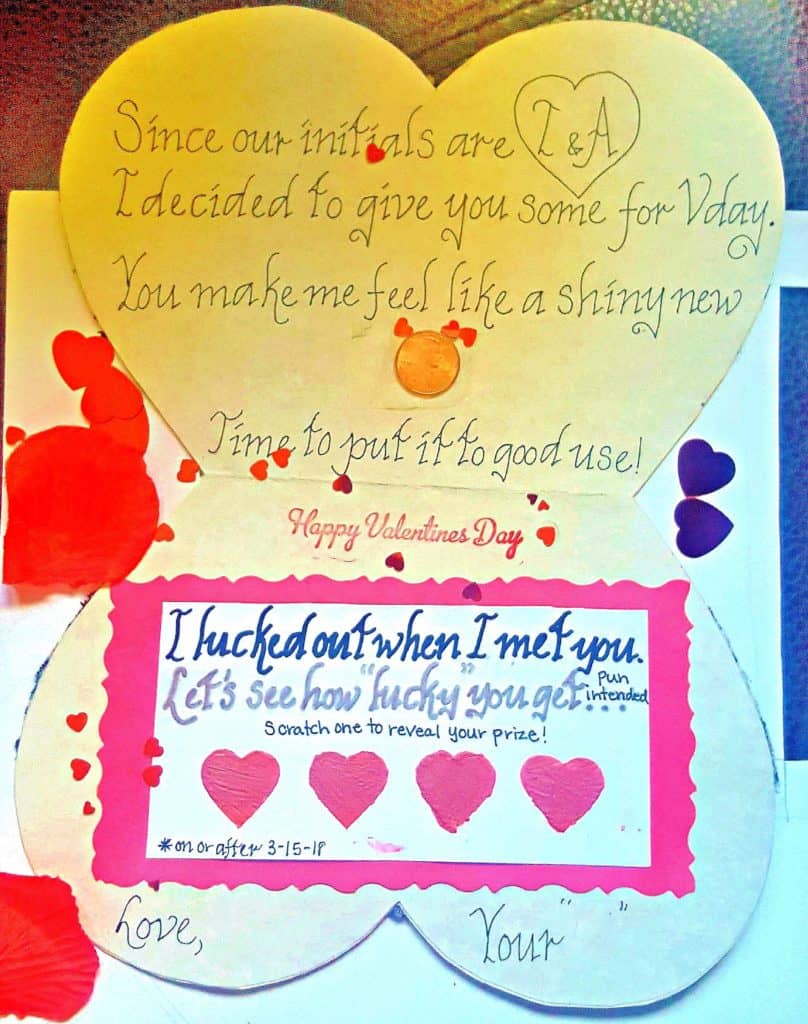 Since our initials are T & A
I decided to give you some for Vday.
You make me feel like a shiny new
Time to put it to good use!
Happy Valentines Day
I lucked out when I met you.
Let's see how "lucky" you get...
Pun
intended
Scratch one to reveal your prize!
*on or after 3-15-18
Love,
Your " "